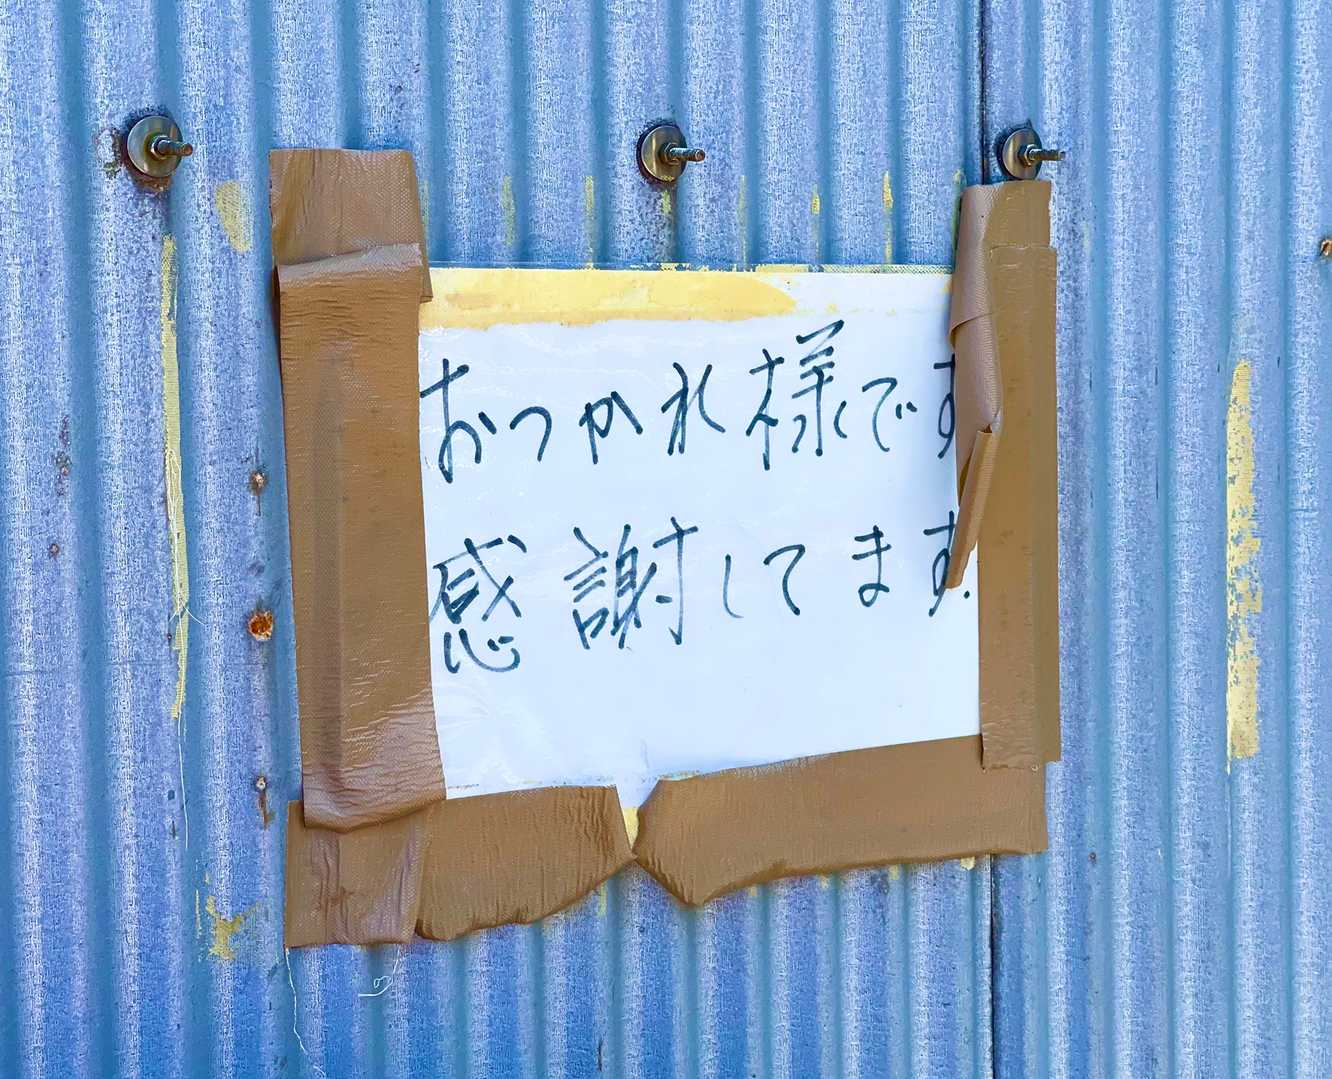 おつかれ様です
感謝してます.